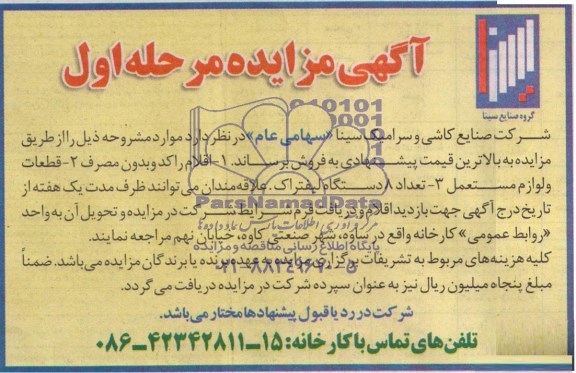 آگهی مزایده مرحله اول
سینا
گروه صنایع سینا
شرکت صنایع کاشی و سرامیک سینا «سهامی عام» در نظر دارد موارد مشروحه ذیل را از طریق
مزایده به بالاترین قیمت پیشنهادی به فروش برساند. ۱- اقلام راکد و بدون مصرف ۲- قطعات
و لوازم مستعمل ۳- تعداد ۸ دستگاه لیفتراک. علاقه‌مندان می‌توانند ظرف مدت یک هفته از
تاریخ درج آگهی جهت بازدید اقلام و دریافت فرم شرایط شرکت در مزایده و تحویل آن به واحد
«روابط عمومی» کارخانه واقع در ساوه، شهر صنعتی کاوه، خیابان نهم مراجعه نمایند.
کلیه هزینه‌های مربوط به تشریفات برگزاری مزایده به عهده برنده یا برندگان مزایده می‌باشد. ضمناً
مبلغ پنجاه میلیون ریال نیز به عنوان سپرده شرکت در مزایده دریافت می گردد.
شرکت در رد یا قبول پیشنهادها مختار می‌باشد.
تلفن های تماس با کارخانه: ۱۵-۴۲۳۴۲۸۱۱-۰۸۶
ParsNamadData
پایگاه اطلاع رسانی مناقصه و مزایده
۰۲۱-۸۸۳۴۹۶۷۰-۵